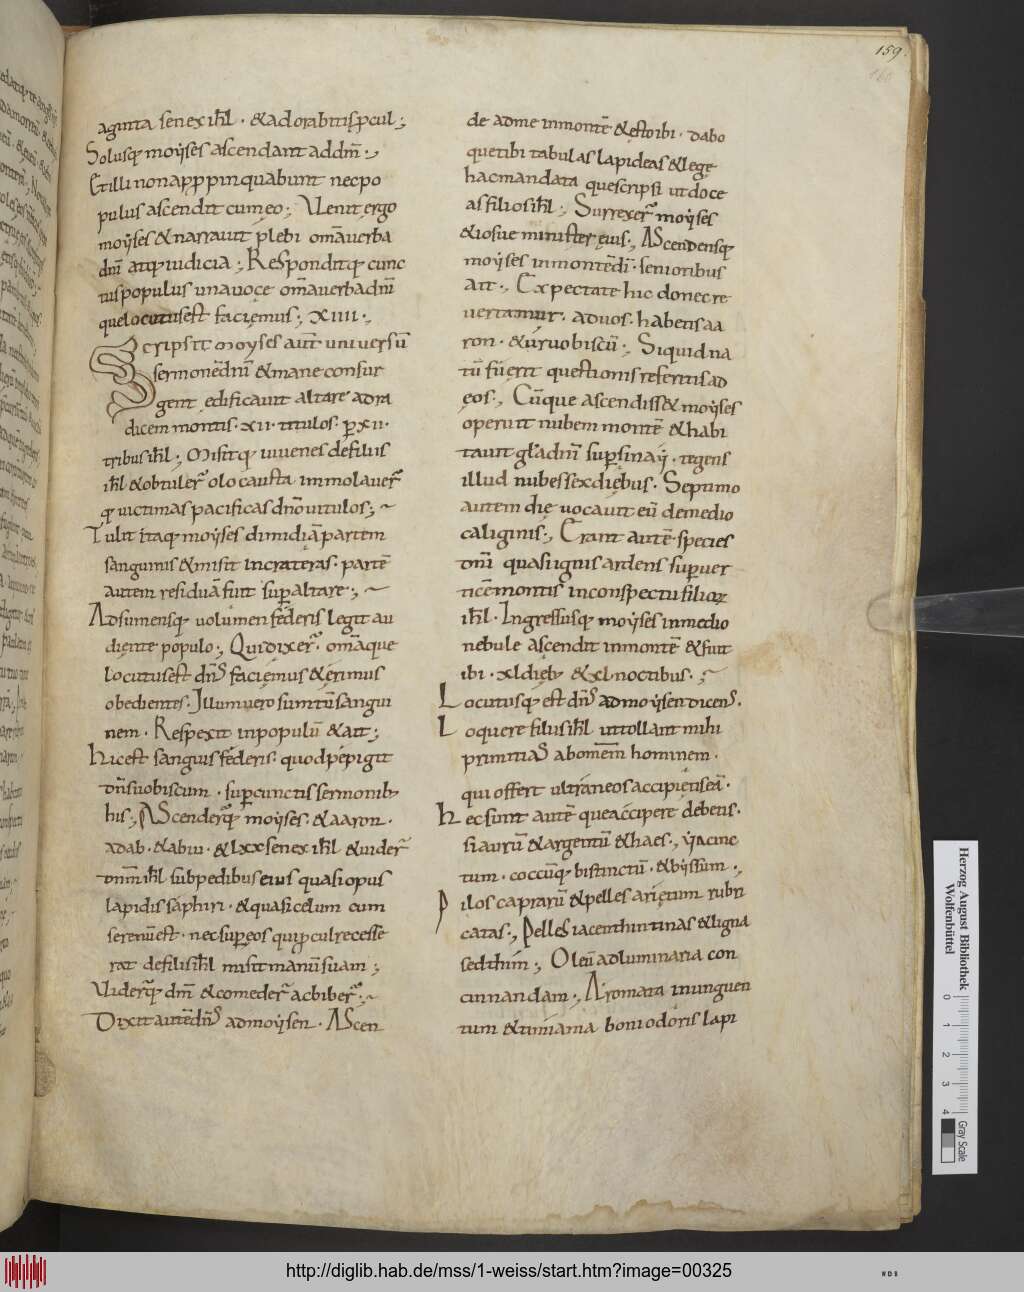 159.
160
aginta senex ihl̄ · & adorabitis ꝓcul ·;
Solusq; moẏses ascendant ad dm̄ ·,
Et illi non apꝓpinquabunt nec po
pulus ascendit cum eo ·; Venit ergo
moẏses & narravit plebi om̄a verba
dnī atq; iudicia ·; Responditq; cunc
tus populus una voce om̄a verba dnī
que locutus est faciemus ·; XIIII ·,
Scripsit moyses aut̄ universū
sermonē dnī & mane consur
gens ędificavit altare ad ra
dicem montis · XII · titulos · ꝑ XII ·
tribus ihl̄ ·; Misitq; iuvenes de filiis
ihl̄ & obtuler̄ olocausta immolaver̄
q; victimas pacificas dnō vitulos ·;~
Tulit itaq; moẏses dimidiā partem
sanguinis & misit in crateras · partē
autem residuā fuit suꝑ altare ·;~
Adsumensq; volumen fęderis legit au
diente populo ·; Qui dixer̄ · om̄a que
locutus est dn̄s faciemus & erimus
obedientes · Ille vero sumtū sangui
nem · Respexit in populū & ait ·;
Hic est sanguis fęderis · quod pepigit
dn̄s vobiscum · suꝑ cunctis sermonib;
his ·; Ascenderq; moẏses · & aaron ·
adab · & abiu · & LXX senex ihl̄ & vider̄
dnm̄ ihl̄ sub pedibus eius quasi opus
lapidis saphiri · & quasi celum cum
serenū est · nec suꝑ eos qui ꝓcul recesse
rat de filiis ihl̄ misit manū suam ·;
Viderq; dm̄ & comeder̄ ac biber̄ ·;~
Dixit autē dn̄s ad moẏsen · Ascen
de ad me in montē & esto ibi · dabo
que tibi tabulas lapideas & lege
hac mandata que scripsi ut doce
as filios ihl̄ ·; Surrexer̄ moẏses
& iosue minister eius ·, Ascendensq;
moẏses in montē dī · senioribus
ait ·, Expectate hic donec re
vertamur · ad vos · habetis aa
ron · & ur vobiscū ·; Si quid na
tū fuerit questionis referetis ad
eos ·, Cūque ascendiss& moẏses
operuit nubem montē & habi
tavit glā dnī suꝑ sinaẏ · tegens
illud nubes sex diebus · Septimo
autem die vocavit eū de medio
caliginis ·, Erant autē species
dnī quasi ignis ardens suꝑ ver
ticē montis in conspectu filioꝝ
ihl̄ · Ingressusq; moẏses in medio
nebule ascendit in montē & fuit
ibi · XL dieb; & XL noctibus ·;~
Locutusq; est dn̄s ad moẏsen dicens̄ ·
Loquere filiis ihl̄ ut tollant mihi
primitias ab omem̄ hominem ·
qui offert ultraneos accipietis eā ·
Hec sunt autē que accipere debetis ·
si aurū & argentū & haes ·, ẏacinc
tum · coccūq; bistinctū · & bẏssum ·,
Pilos caprarū & pelles arietum rubri
catas ·, Pelles iacenthintinas & ligna
sedthim ·, Oleū ad luminaria con
cinnandam ·, Aromata in unguen
tum & timiama boni odoris lapi
Herzog August Bibliothek
Wolfenbüttel
0 1 2 3 4
Gray Scale
http://diglib.hab.de/mss/1-weiss/start.htm?image=00325